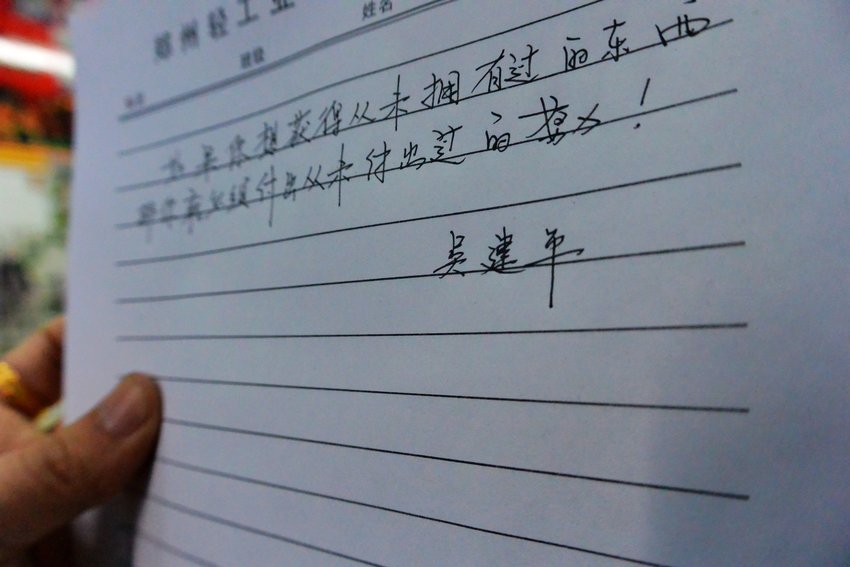 郑州轻工业
班级 姓名
如果你想获得从未拥有过的东西
那你就必须付出从未付出过的努力！
吴建平